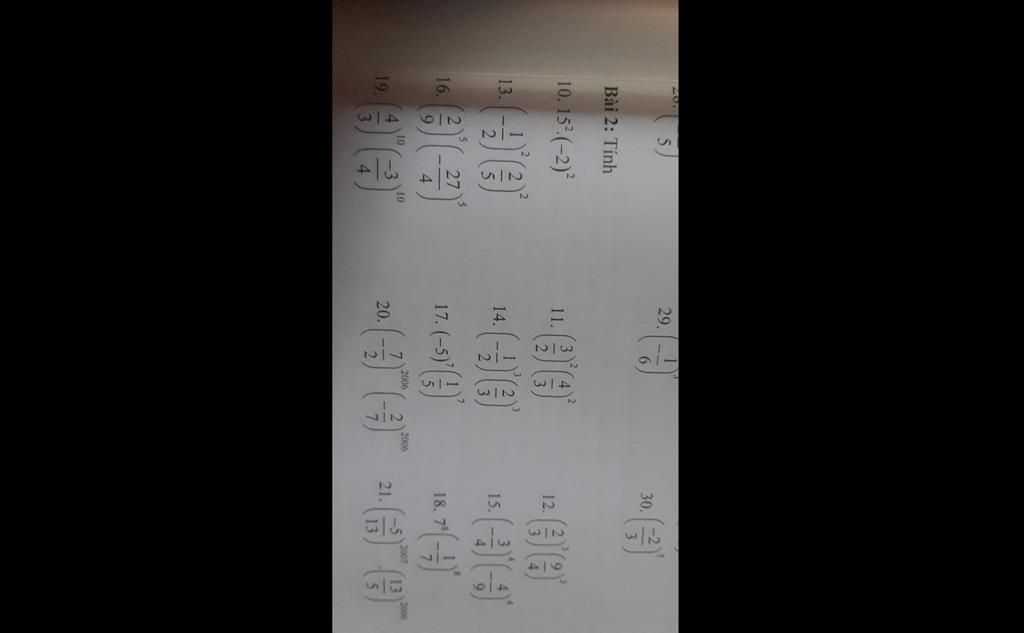 29. (-1/6)
30. (-2/3)^5
Bài 2: Tính
10. 15^2.(-2)^2 11. (3/2)^2 (4/3)^2 12. (2/3)^3 (9/4)^3
13. (-1/2)^2 (2/5)^2 14. (-1/2)^3 (2/3)^3 15. (-3/4)^4 (-4/9)^4
16. (2/9)^5 (-27/4)^5 17. (-5)^7 (1/5)^7 18. 7^8 (-1/7)^8
19. (4/3)^10 (-3/4)^10 20. (-7/2)^2006 (-2/7)^2006 21. (-5/13)^2007 .(13/5)^2006